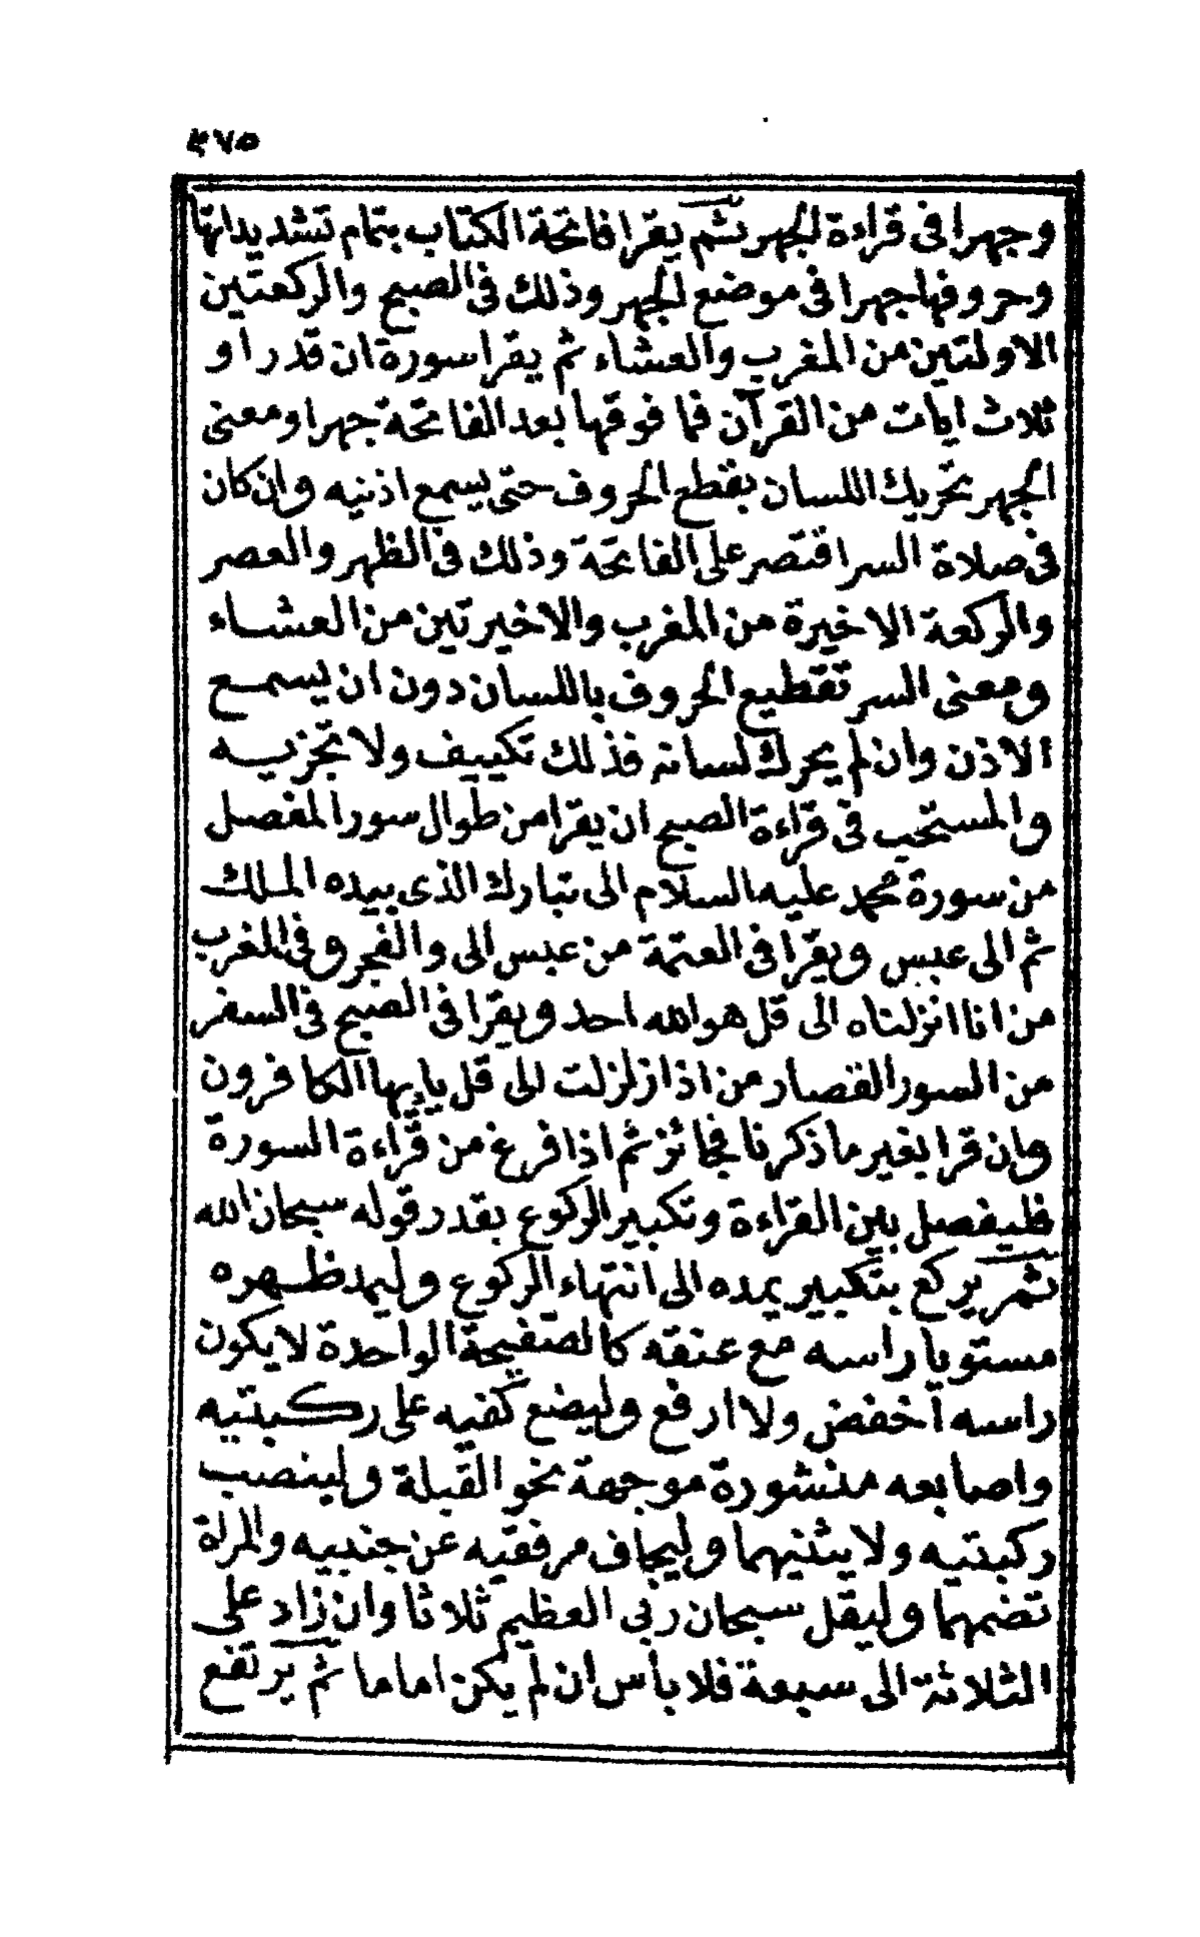 ٤٧٥
وجهرا فى قراءة الجهر ثم يقرا فاتحة الكتاب بتمام تشديداتها
وحروفها جهرا فى موضع الجهر وذلك فى الصبح والركعتين
الاولتين من المغرب والعشاء ثم يقرا سورة ان قدر او
ثلاث ايات من القرآن فما فوقها بعد الفاتحة جهرا ومعنى
الجهر تحريك اللسان بقطع الحروف حتى يسمع اذنيه وان كان
فى صلاة السر اقتصر على الفاتحة وذلك فى الظهر والعصر
والركعة الاخيرة من المغرب والاخيرتين من العشاء
ومعنى السر تقطيع الحروف باللسان دون ان يسمع
الاذن وان لم يحرك لسانه فذلك تكييف ولا تجزيه
والمستحب فى قراءة الصبح ان يقرا من طوال سور المفصل
من سورة محمد عليه السلام الى تبارك الذى بيده الملك
ثم الى عبس ويقرا فى العتمة من عبس الى والفجر وفى المغرب
من انا انزلناه الى قل هو الله احد ويقرا فى الصبح فى السفر
من السور القصار من اذا زلزلت الى قل يايها الكافرون
وان قرا بغير ما ذكرنا فجائز ثم اذا فرغ من قراءة السورة
فليفصل بين القراءة وتكبير الركوع بقدر قوله سبحان الله
ثم يركع بتكبير يمده الى انتهاء الركوع وليمد ظهره
مستويا راسه مع عنقه كالصفيحة الواحدة لا يكون
راسه اخفض ولا ارفع وليضع كفيه على ركبتيه
واصابعه منشورة موجهة نحو القبلة ولينصب
ركبتيه ولا يثنيهما وليجاف مرفقيه عن جنبيه والمراة
تضمهما وليقل سبحان ربى العظيم ثلاثا وان زاد على
الثلاثة الى سبعة فلا بأس ان لم يكن اماما ثم يرتفع